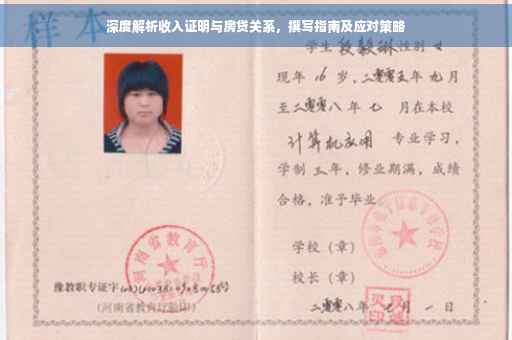 样本
深度解析收入证明与房贷关系，撰写指南及应对策略
学生 段毅琳 性别 女
现年 16 岁，二零零五年 九 月
至二零零八 年 七 月在本校
计算机应用 专业学习，
学制 三 年，修业期满，成绩
合格，准予毕业
学校（章）
校长（章）
二零零八年 月 一 日
河南省教育厅
豫教职专证字
（河南省教育厅验印）